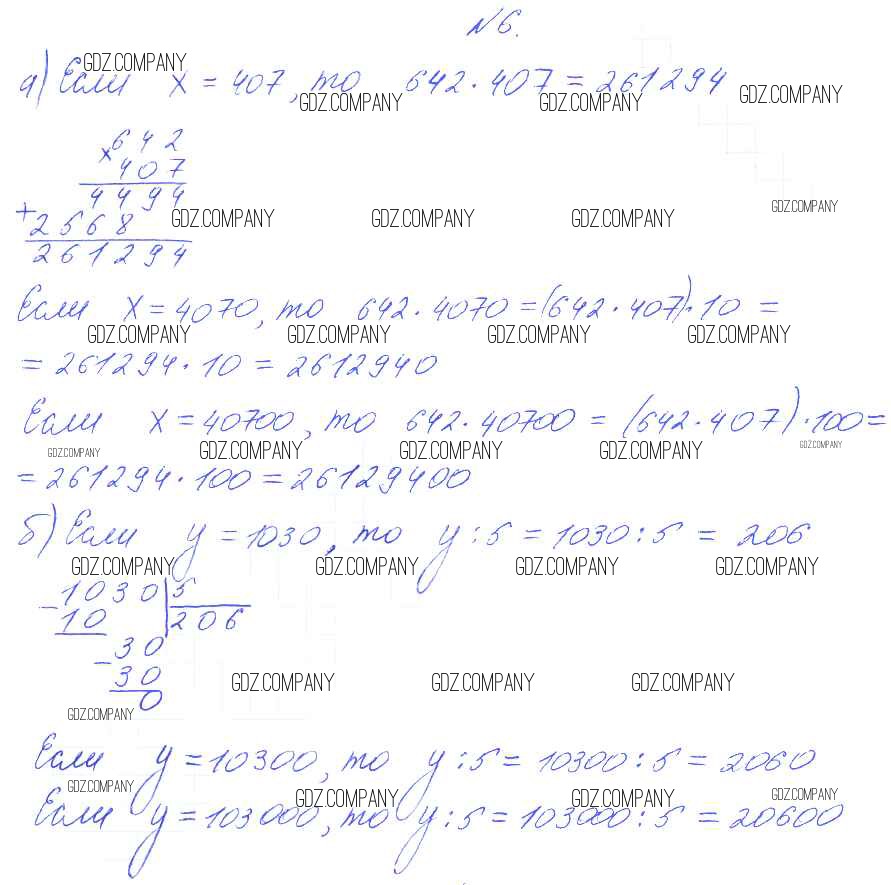 №6.
а) Если x = 407, то 642 · 407 = 261294
GDZ.COMPANY
GDZ.COMPANY GDZ.COMPANY GDZ.COMPANY
× 642
407
4494
GDZ.COMPANY
+ 2568 GDZ.COMPANY GDZ.COMPANY GDZ.COMPANY
261294
Если x = 4070, то 642 · 4070 = (642 · 407) · 10 =
GDZ.COMPANY GDZ.COMPANY GDZ.COMPANY GDZ.COMPANY
= 261294 · 10 = 2612940
Если x = 40700, то 642 · 40700 = (642 · 407) · 100 =
GDZ.COMPANY GDZ.COMPANY GDZ.COMPANY GDZ.COMPANY GDZ.COMPANY
= 261294 · 100 = 26129400
б) Если y = 1030, то y : 5 = 1030 : 5 = 206
GDZ.COMPANY GDZ.COMPANY GDZ.COMPANY GDZ.COMPANY
− 1030 | 5
10 | 206
− 30
30 GDZ.COMPANY GDZ.COMPANY GDZ.COMPANY
0
GDZ.COMPANY
Если y = 10300, то y : 5 = 10300 : 5 = 2060
GDZ.COMPANY GDZ.COMPANY GDZ.COMPANY GDZ.COMPANY
Если y = 103000, то y : 5 = 103000 : 5 = 20600